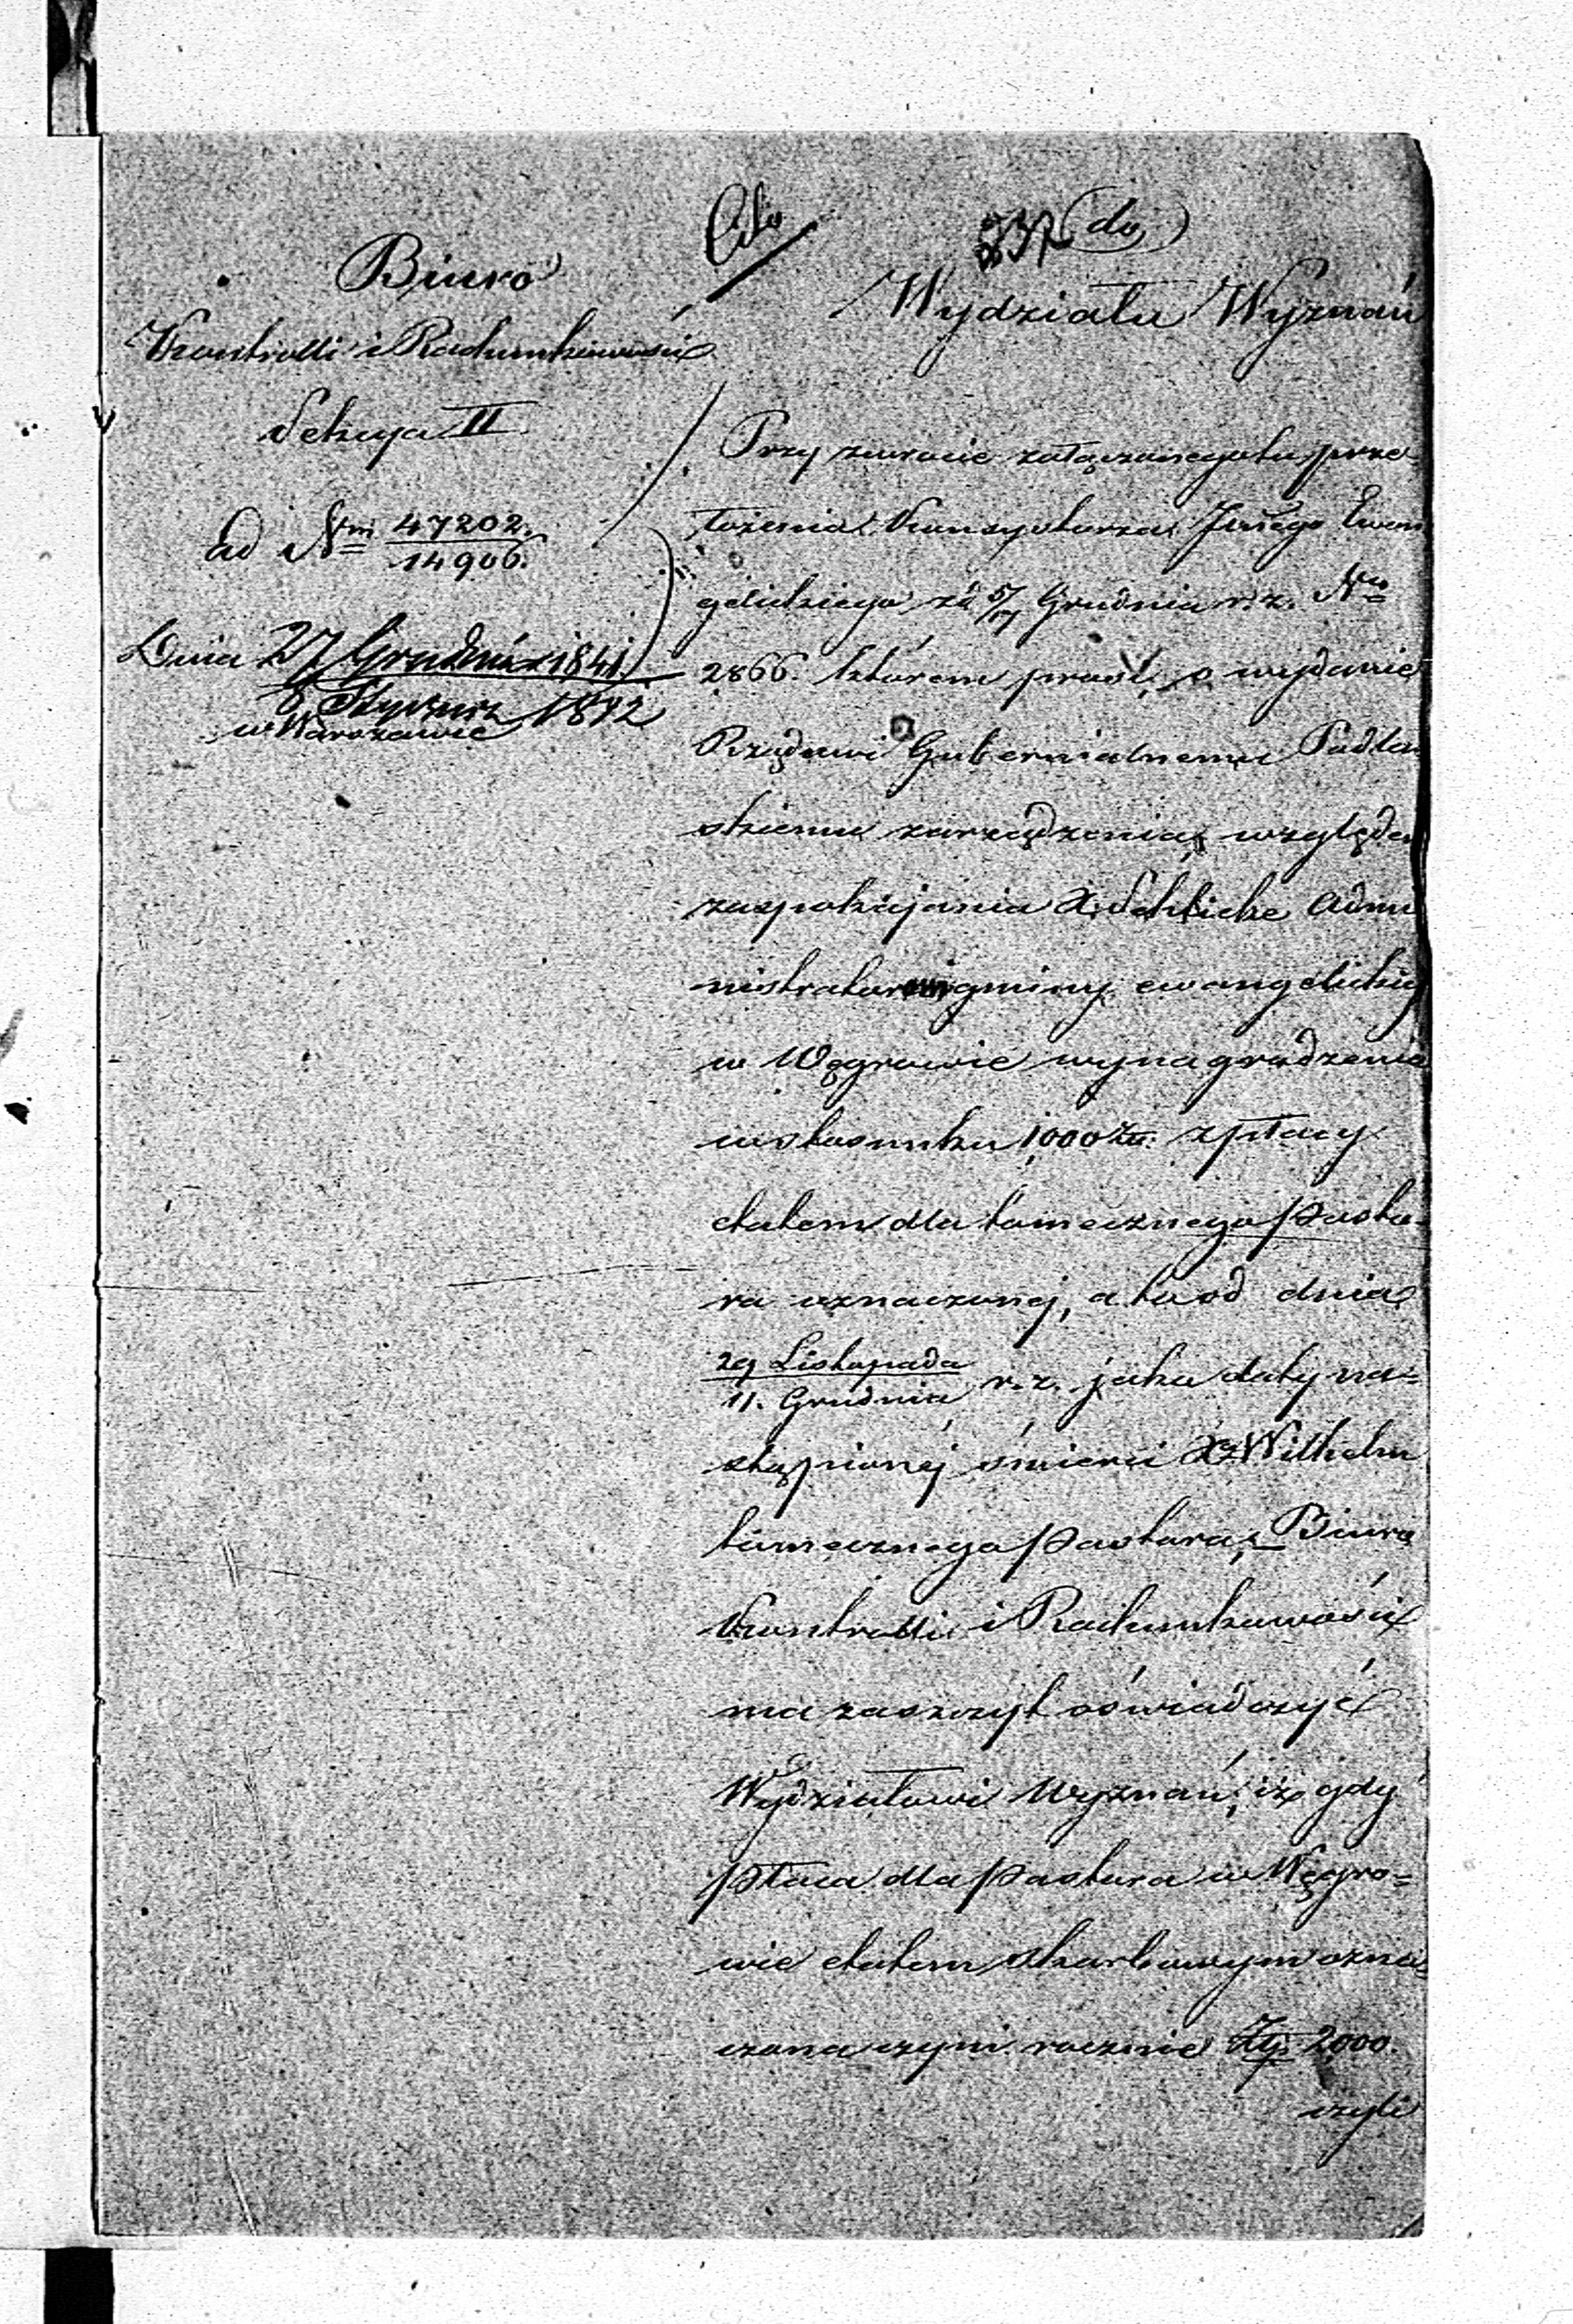 Cito
237 (do)
Biuro
Kontrolli i Rachunkowości
Sekcya II
ad Nm 47202./14906.
Dnia 27 Grudnia 1841/8 Stycznia 1842
w Warszawie
Wydziału Wyznań
Przy zwrocie załączonego tu prze-
łożenia Konsystorza Jnego Ewan
gelickiego za 5/17 Grudnia r.z. Nro
2866. którem prosi o wydanie
Rządowi Gubernialnemu Podla
skiemu zarządzenia, względem
zaspokajania X. Schlicke Admi
nistratorowi gminy ewangelickiej
w Węgrowie wynagrodzenia
w stosunku 1,000 Złł. z płacy
etatem dla tamecznego Pasto-
ra oznaczonej, a to od dnia
29 Listopada/11. Grudnia r.z. jako daty na=
stąpionej śmierci X. Wilhelm
tamecznego Pastora, Biuro
Kontrolli i Rachunkowości
ma zaszczyt oświadczyć
Wydziałowi Wyznań, iż gdy
Płaca dla Pastora w Węgro=
wie etatem skarbowym ozna=
czona czyni rocznie Złp. 2,000.
czyli